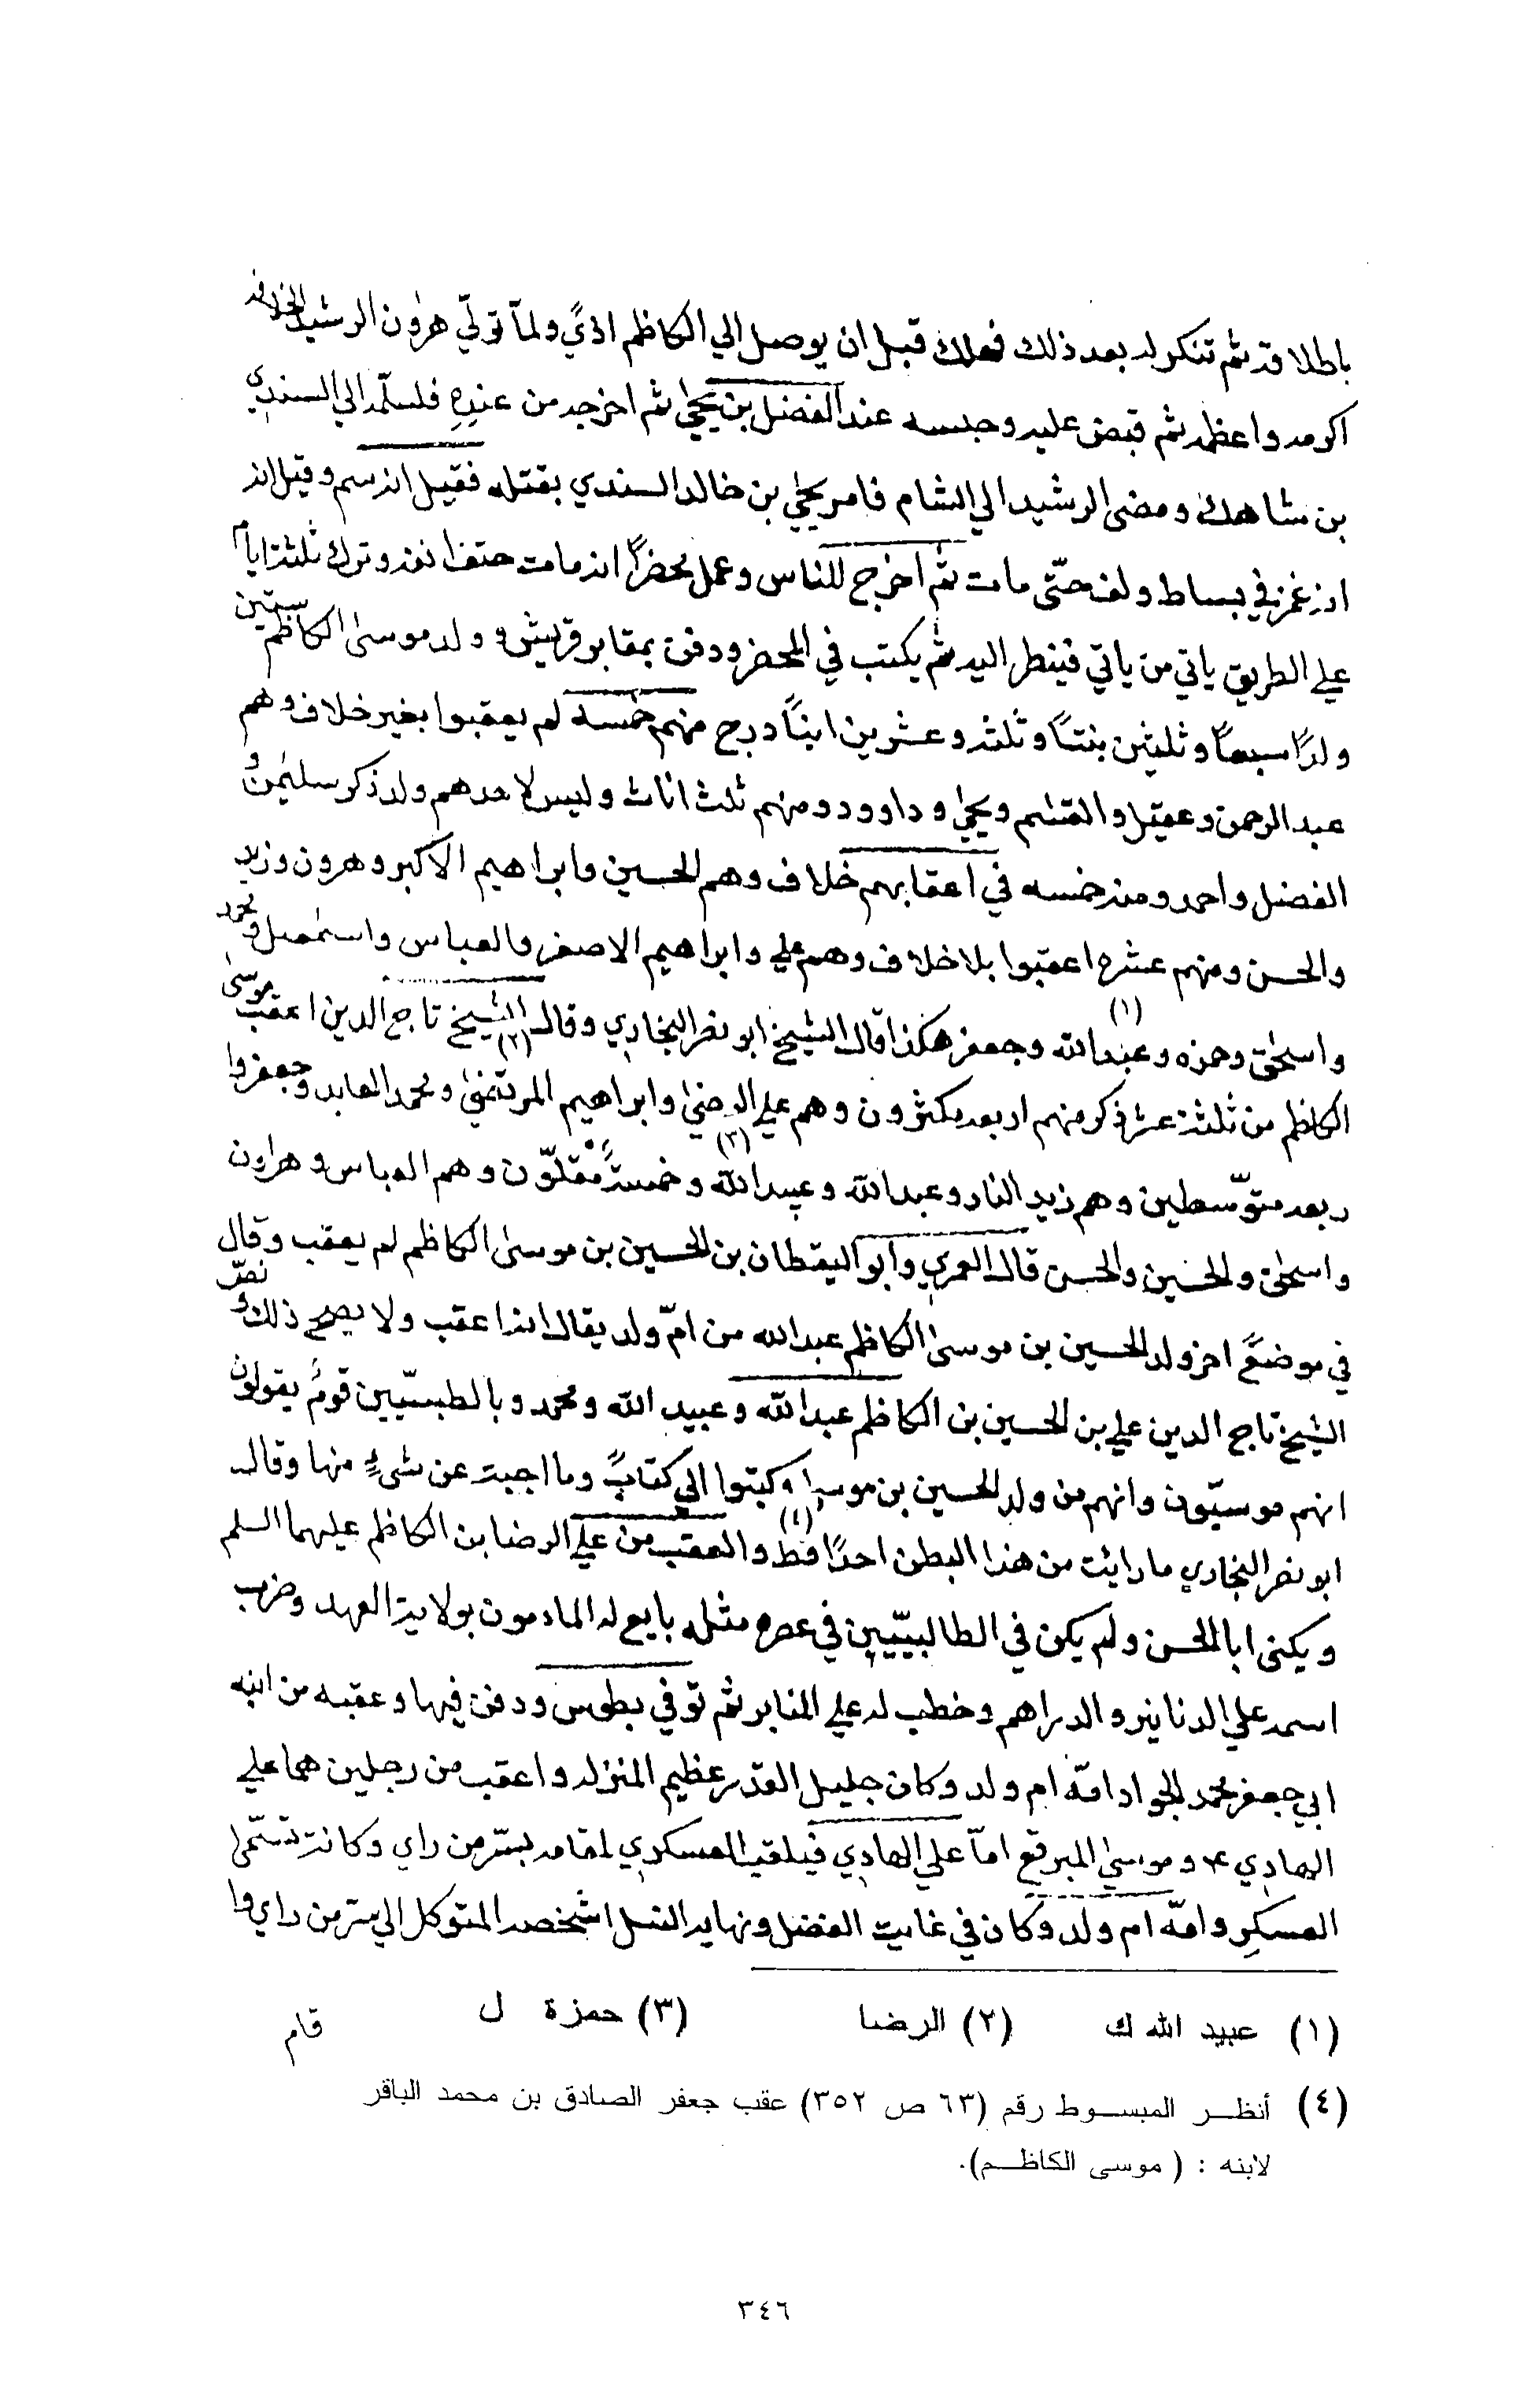 باطلاقه ثم تنكر له بعد ذلك فهلك قبل ان يوصل الي الكاظم اذيً ولمّا تولّي هرون الرشيد الخلافه
اكرمه واعظمه ثم قبض عليه وحبسه عند الفضل بن يحيٰ ثم اخرجه من عنده فسلّمه الي السندي
بن شاهك ومضى الرشيد الي الشام فامر يحيٰ بن خالد السندي بقتله فقيل انه سم وقيل انه
غمز في بساط ولف حتّى مات ثم اخرج للناس وعمل محضراً انه مات حتف انفه وترك ثلثة اياما
علي الطريق ياتي من ياتي فينظر اليه ثم يكتب في المحضر ودفن بمقابر قريش وولد موسىٰ الكاظم ستين
ولداً سبعاً وثلثين بنتاً وثلثه وعشرين ابناً درج منهم خمسه لم يعقبوا بغير خلاف وهم
عبد الرحمن وعقيل والقٰسم ويحيٰ وداوود ومنهم ثلث اناث وليس لاحدهم ولد ذكر سليمٰن و
الفضل واحمد ومنه خمسه في اعقابهم خلاف وهم الحسين وابراهيم الاكبر وهرون وزيد
والحسن ومنهم عشره اعقبوا بلا خلاف وهم علي وابراهيم الاصغر والعباس واسمٰعيل ومحمد
واسحٰق وحمزه وعبدالله (١) وجعفر هكذا قال الشيخ ابو نصر البخاري وقال الشيخ تاج الدين اعقب موسىٰ
الكاظم من ثلثة عشر ذكر منهم اربعه مكثرون وهم علي الرضىٰ (٢) وابراهيم المرتضىٰ ومحمد العابد وجعفر وا
ربعه متوّسطين وهم زيد النار وعبدالله وعبيدالله (٣) وخمسةً مُقلّون وهم العباس وهراون
واسحٰق والحسين والحسن قال العمري وابو اليقظان بن الحسين بن موسىٰ الكاظم لم يعقب وقال
في موضعً اخر ولد الحسين بن موسىٰ الكاظم عبدالله من امّ ولد يقال انه اعقب ولا يصح ذلك و نصّ
الشيخ تاج الدين علي بن الحسين بن الكاظم عبدالله وعبيد الله ومحمد وبالطبسيّين قومُ يقولون
انهم موسيّون وانهم من ولد الحسين بن موسىٰ وكتبوا الي كتابً وما اجبت عن شيءٍ منها وقال
ابو نصر البخاري ما رايت من هذا البطن احداً قط (٤) والعقب من علي الرضا بن الكاظم عليهما السلم
ويكنى ابا الحسن ولم يكن في الطالبيّين في عصره مثله بايع له المامون بولاية العهد وضرب
اسمه علي الدنانير والدراهم وخطب له علي المنابر ثم توفي بطوس ودفن فيها وعقبه من ابنه
ابي جعفر محمد الجواد امّه ام ولد وكان جليل القدر عظيم المنزله واعقب من رجلين هما علي
الهادي ء وموسىٰ المبرقع امّا علي الهادي فيلقب العسكري لمقامه بسرّ من راي وكانت تسمّىٰ
العسكر وامّه ام ولد وكان في غايت الفضل ونهايه النبل اشخصه المتوكل الي سر من راي وا
(١) عبيد الله ك (٢) الرضا (٣) حمزة ل قام
(٤) أنظـر المبسـوط رقم (٦٣ ص ٣٥٢) عقب جعفر الصادق بن محمد الباقر
لابنه : ( موسى الكاظـم).
٣٤٦